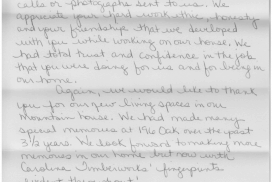 calls or photographs sent to us. We
appreciate your hard work ethic, honesty
and your friendship that we developed
with you while working on our house. We
had total trust and confidence in the job
that you were doing for us and for being in
our home.
Again, we would like to thank
you for our new living spaces in our
mountain house. We had made many
special memories at 156 Oak over the past
3 1/2 years. We look forward to making more
memories in our home but now with
Carolina Timberworks' fingerprints